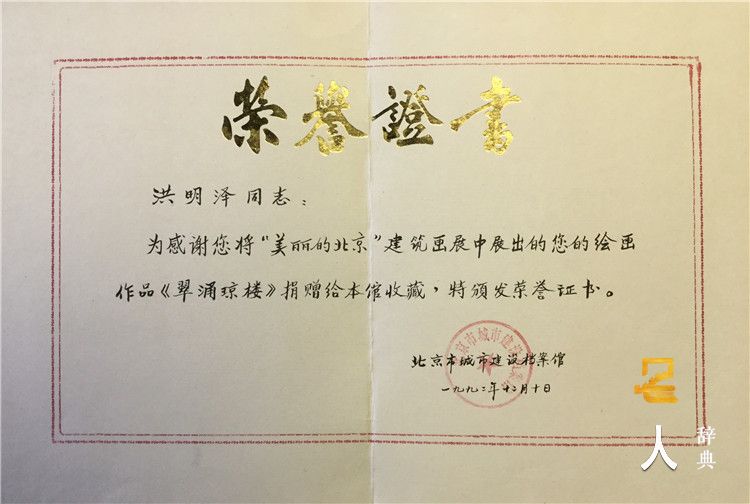 榮譽證書
洪明泽同志：
为感谢您将“美丽的北京”建筑画展中展出的您的绘画
作品《翠涌琼楼》捐赠给本馆收藏，特颁发荣誉证书。
北京市城市建设档案馆
一九九二年十二月十日
人 辞典